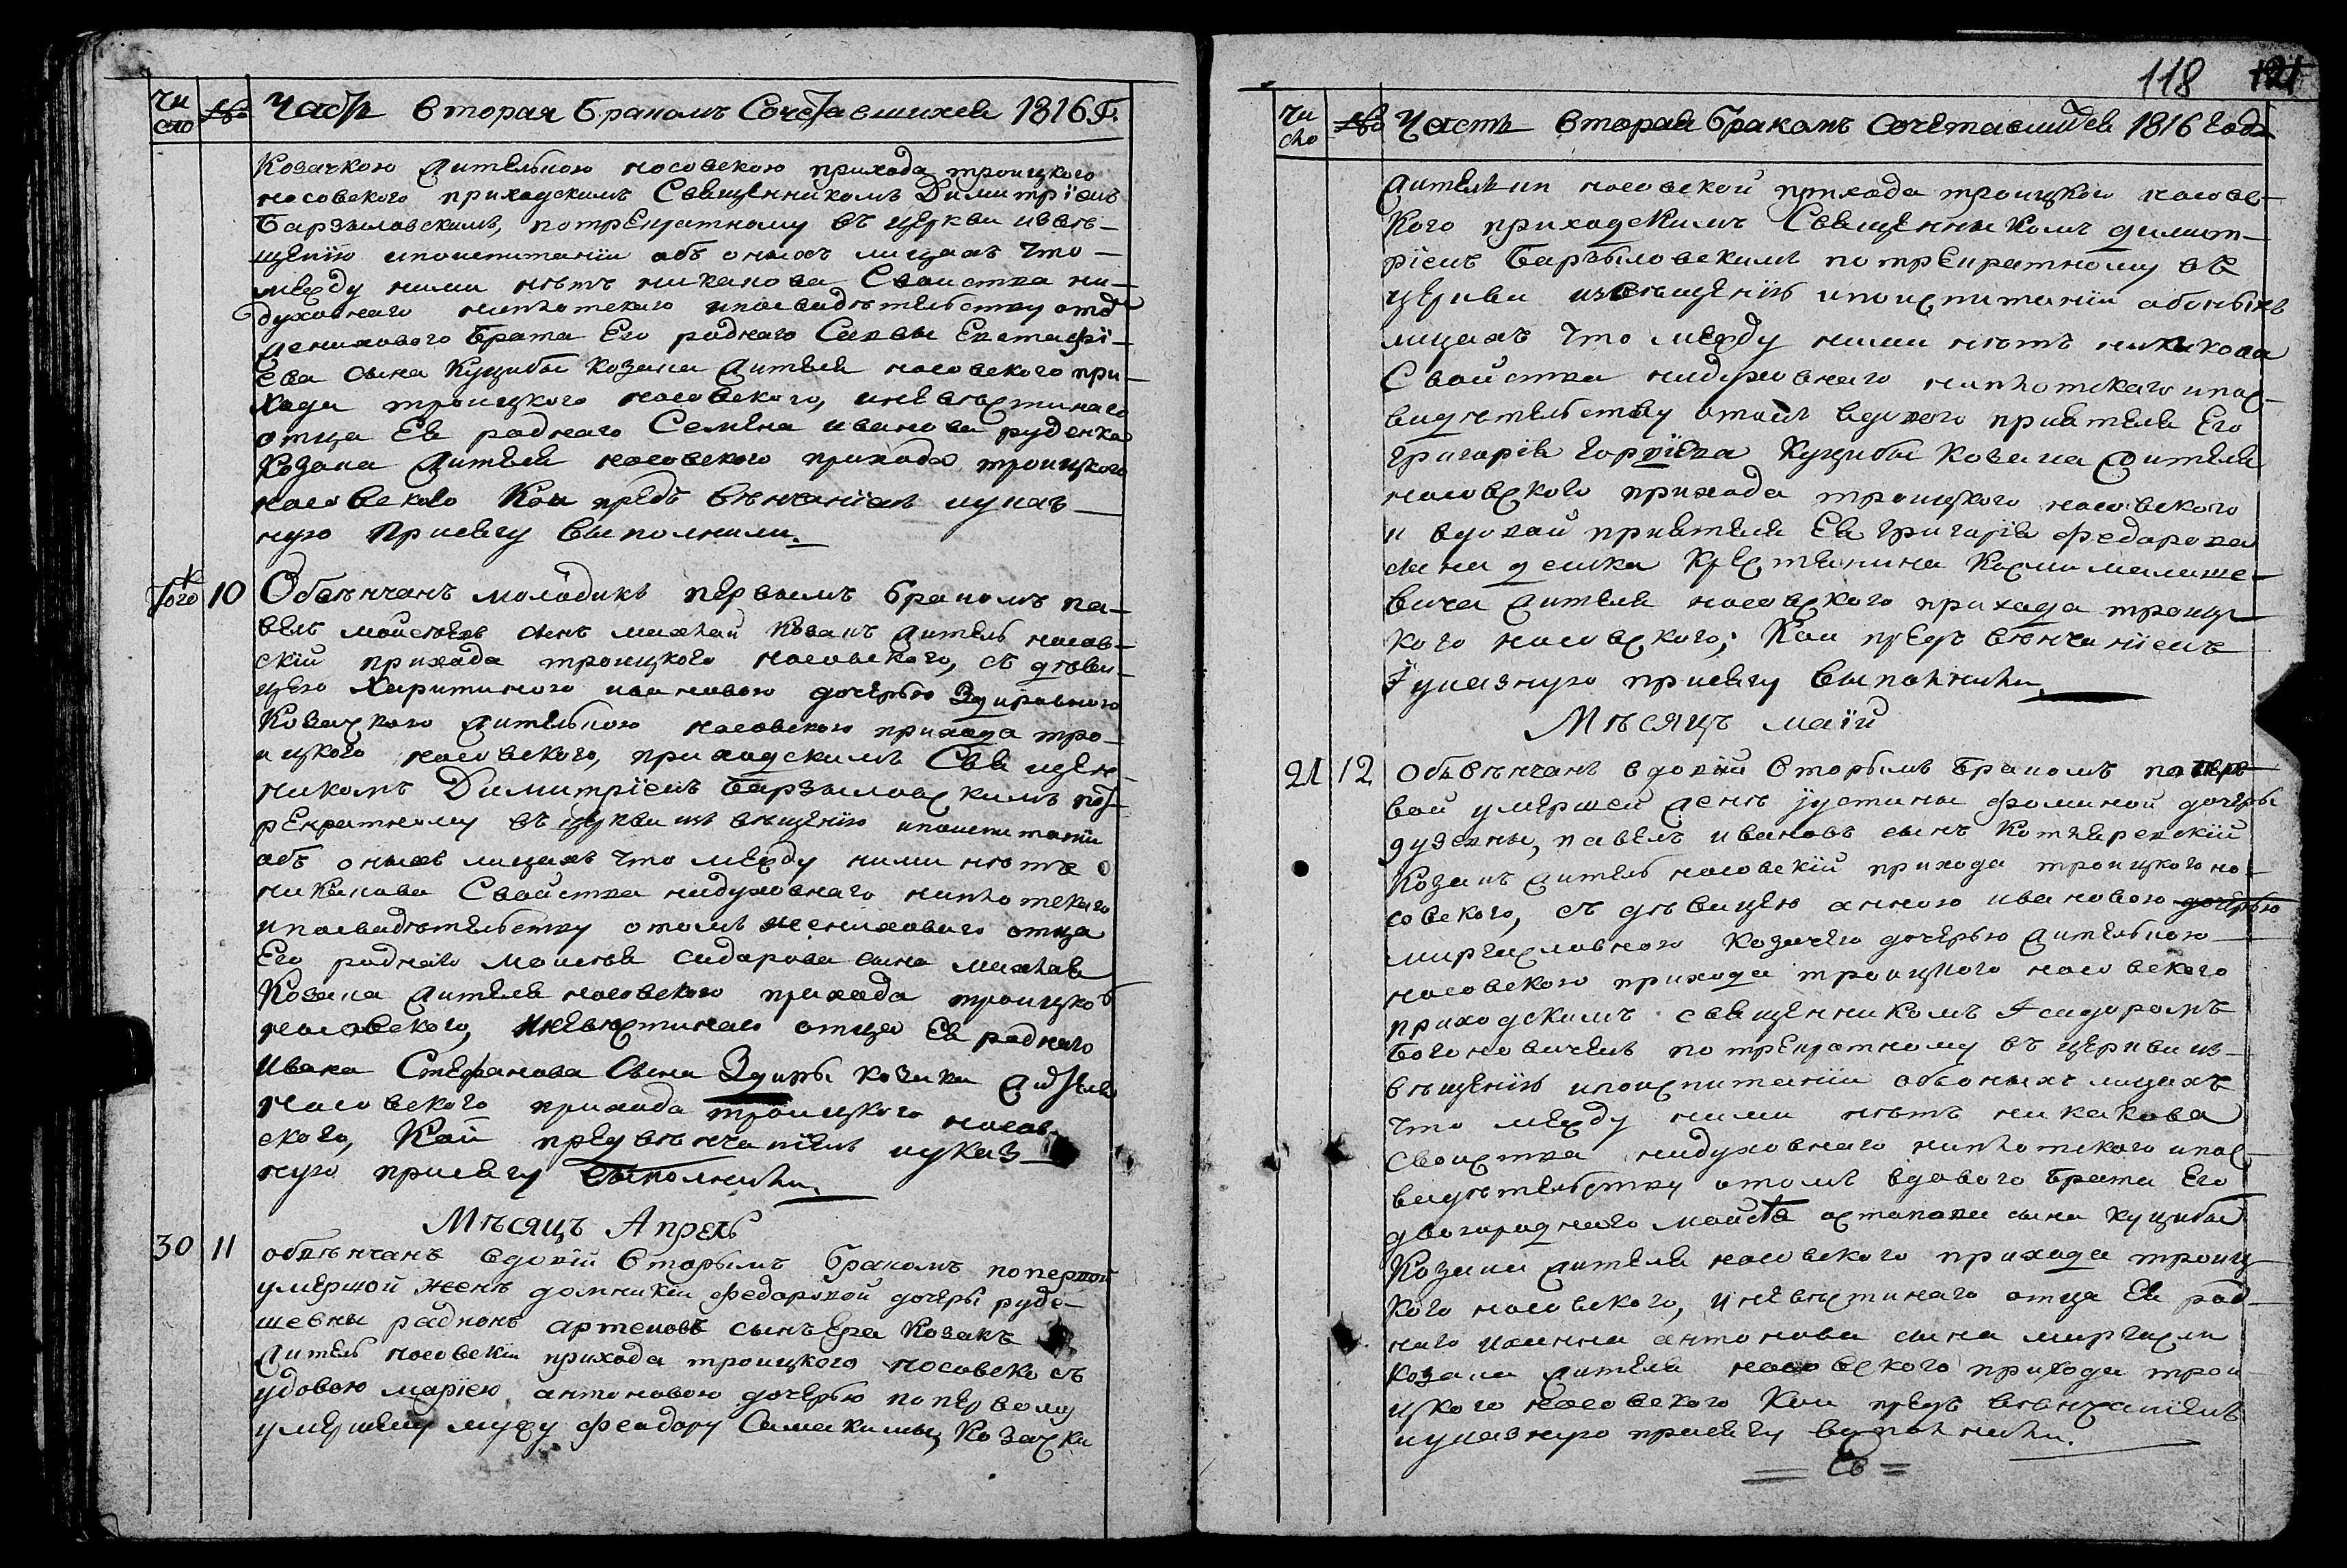 Чи
сло
№
Часть вторая Бракомъ Сочетавшихся 1816 Г.
Козачкою жительною носовскою прихода троицкого
носовского приходскимъ Священникомъ Димитрїемъ
Барзыловскимъ, потрекратному въ церкви извѣ-
щенїю ипоиспитанїи объ оныхъ лицахъ что
между ними нѣтъ никакова Свойства ни-
духовнаго ниплотскаго ипосвидѣтельству отъ
женихового брата Его роднаго Саввы Евстафї-
ева сына Куцибы козака жителя носовского при-
хода троицкого носовского, иневѣстинаго
отца Ея роднаго Семена иванова руденка
Козака жителя носовского прихода троицкого
носовского Кои предъ вѣнчанїемъ иуказ-
ную Присягу выполнили.
Того 10 Обвѣнчанъ молодикъ первымъ бракомъ па-
велъ мойсѣевъ сынъ михлай Козакъ житель носов-
скїй прихода троицкого носовского, съ дѣви-
цею Харитиною ивановою дочерью Здировною
Козачкою жительною носовскою прихода тро-
ицкого носовского, приходскимъ Священ-
никомъ Димитрїемъ Барзыловскимъ пот-
рекратному въ церкви извѣщенїю ипоиспитанїи
объ оныхъ лицахъ что между ними нѣтъ
никакова Свойства нидуховнаго ниплотскаго
ипосвидѣтельству отомъ женихового отца
Его роднаго моисея сидорова сына михлая
Козака жителя носовского прихода троицкого
носовского, иневѣстинаго отца Ея роднаго
Ивана Стефанова Сына Здиры козака жителя
носовского прихода троицкого носов-
ского, Кои предъ вѣнчанїемъ иуказ-
ную присягу выполнили.
Мѣсяцъ Апрель
30 11 обвѣнчанъ вдовїй вторымъ бракомъ поперой
умершой женѣ домникїи федоровой дочеры руде-
шевны родионъ артемовъ сынъ Козакъ
житель носовскїи прихода троицкого носовско съ
удовою марїею антоновою дочерью попервому
умершему мужу Феодору Козачки
118 121
Чи
сло
№
Часть вторая Бракомъ Сочетавшихся 1816 года
жителки носовской прихода троицкого носовс-
кого приходскимъ Священникомъ димит-
рїемъ Барзыловскимъ потрекратному въ
церкви извѣщенїю ипоиспитанїи обоныхъ
лицахъ что между ними нѣтъ никакова
Свойства нидуховнаго ниплотскаго ипос-
видѣтельству отомъ вдового прїятеля Его
григорїя Куцибы козака жителя
носовского прихода троицкого носовского
и вдовой прїятеля Ея григорїя федорова
сына крестянина
жителя носовского прихода троиц-
кого носовского; Кои предъ вѣнчанїемъ
иуказную присягу выполнили.
Мѣсяцъ маїй
21 12 Обвѣнчанъ вдовїй вторымъ бракомъ попер-
вой умершей женѣ устины фоминой дочеры
павелъ ивановъ сынъ
Козакъ житель носовскїй прихода троицкого но-
совского, съ дѣвицею анною ивановою дочерью
козачею дочерью жительною
носовскою прихода троицкого носовского
приходскимъ священникомъ Iсидоромъ
потрекратному въ церкви из-
вѣщенїю ипоиспитанїи обоныхъ лицахъ
что между ними нѣтъ никакова
Свойства нидуховнаго ниплотского ипос-
видѣтельству отомъ вдового брата Его
двогороднаго моисея остапова сына куцибы
Козака жителя носовского прихода троиц-
кого носовского, иневѣстинаго отца Ея род-
наго иоанна антонова сына
козака жителя носовского прихода трои
цкого носовского Кои предъ вѣнчанїемъ
иуказную присягу выполнили.